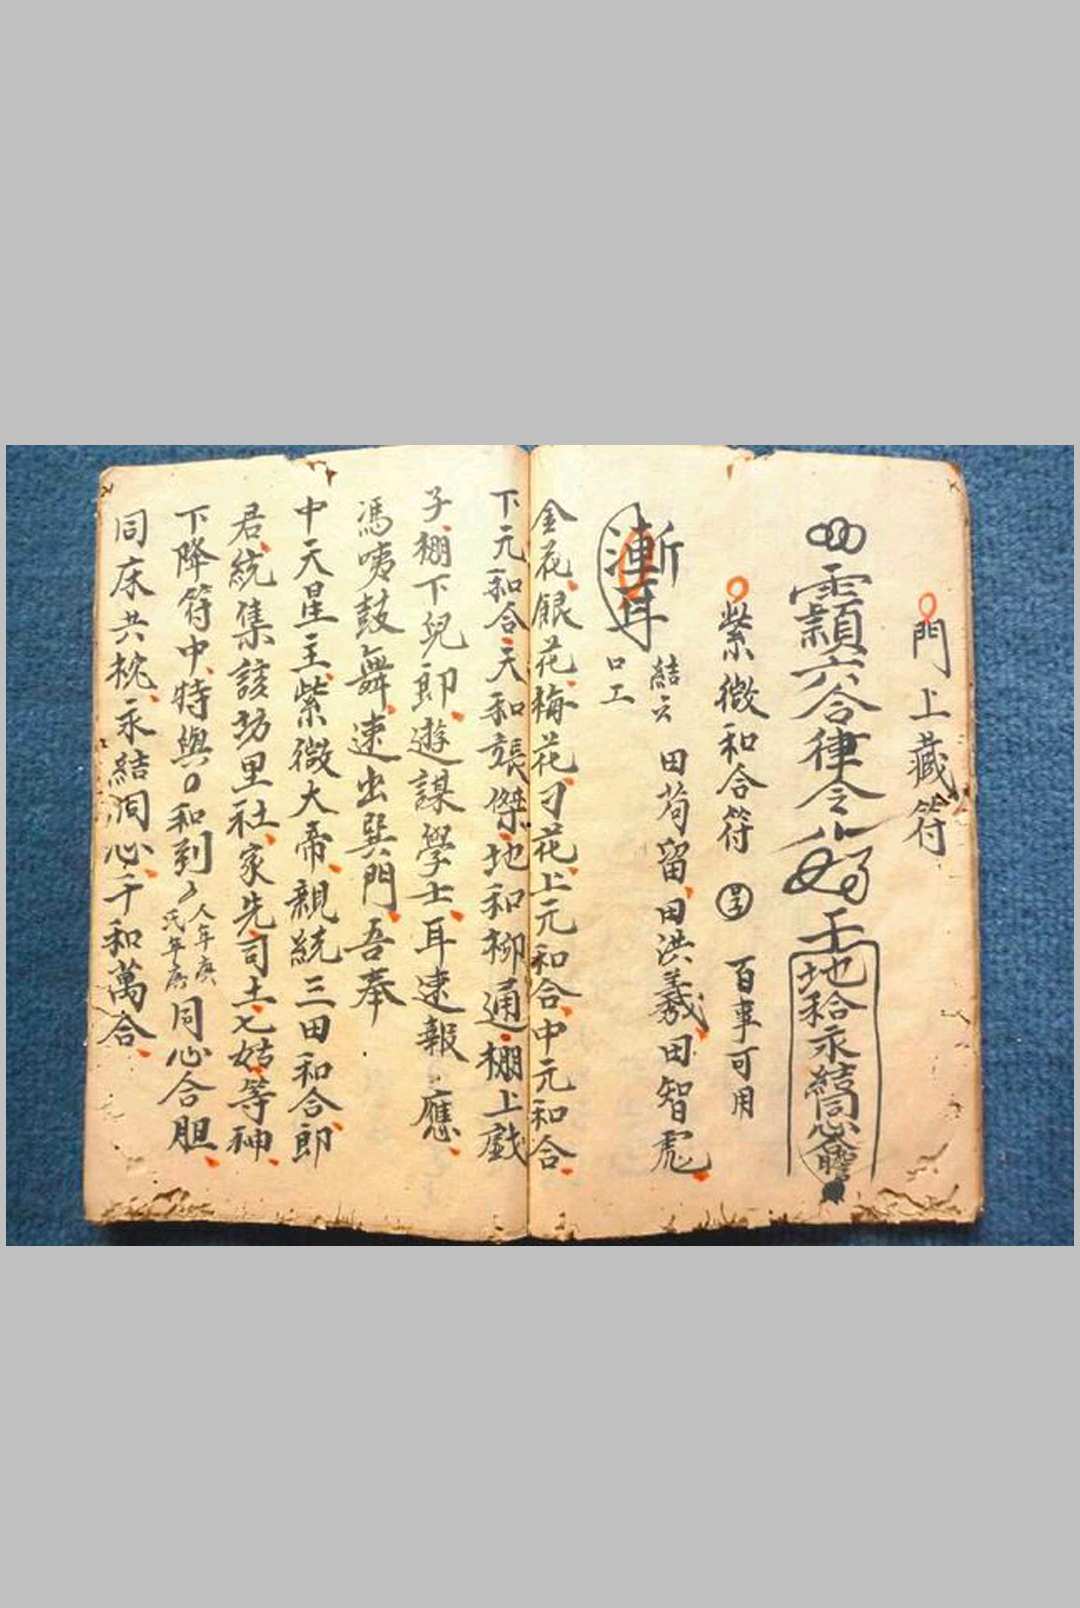 門上藏符
六合律令
地和合永結同心
紫微和合符 百事可用
結云 田苟留田洪義田智彪
口工
金花銀花梅花刁花上元和合中元和合
下元和合天和張傑地和柳通棚上戯
子棚下兒郎遊謀學士耳速報應
馮咦鼓舞速出巽門吾奉
中天星主紫微大帝親統三田和合郎
君統集該坊里社家先司土七姑等神
下降符中特與○和到
人年庚
氏年庚
同心合胆
同床共枕永結同心千和萬合